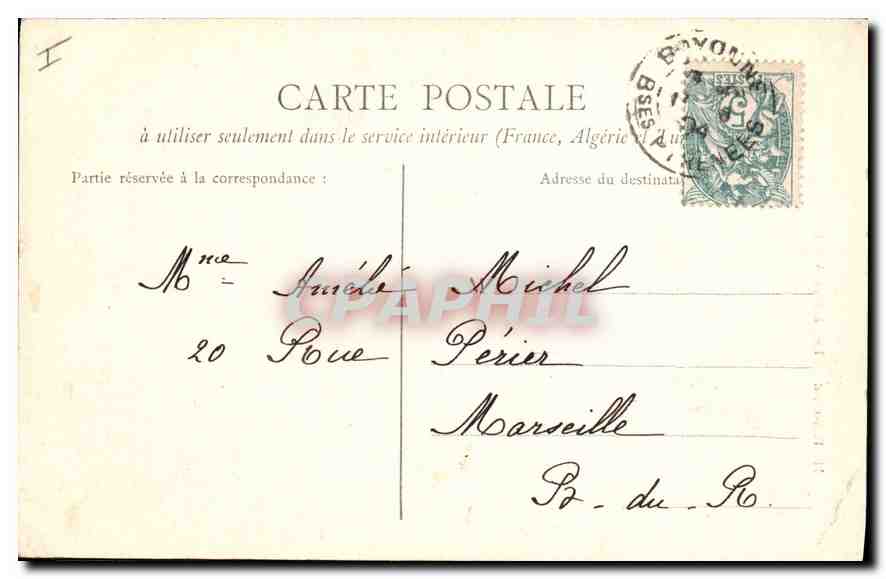 I
CARTE POSTALE
à utiliser seulement dans le service intérieur (France, Algérie et Tu
Partie réservée à la correspondance :
Adresse du destinata
BAYONNE
Bses PYRENEES
04
5
POSTES
Mme Amélé Michel
20 Rue Périer
Marseille
B-du-R.
CPAPHIL